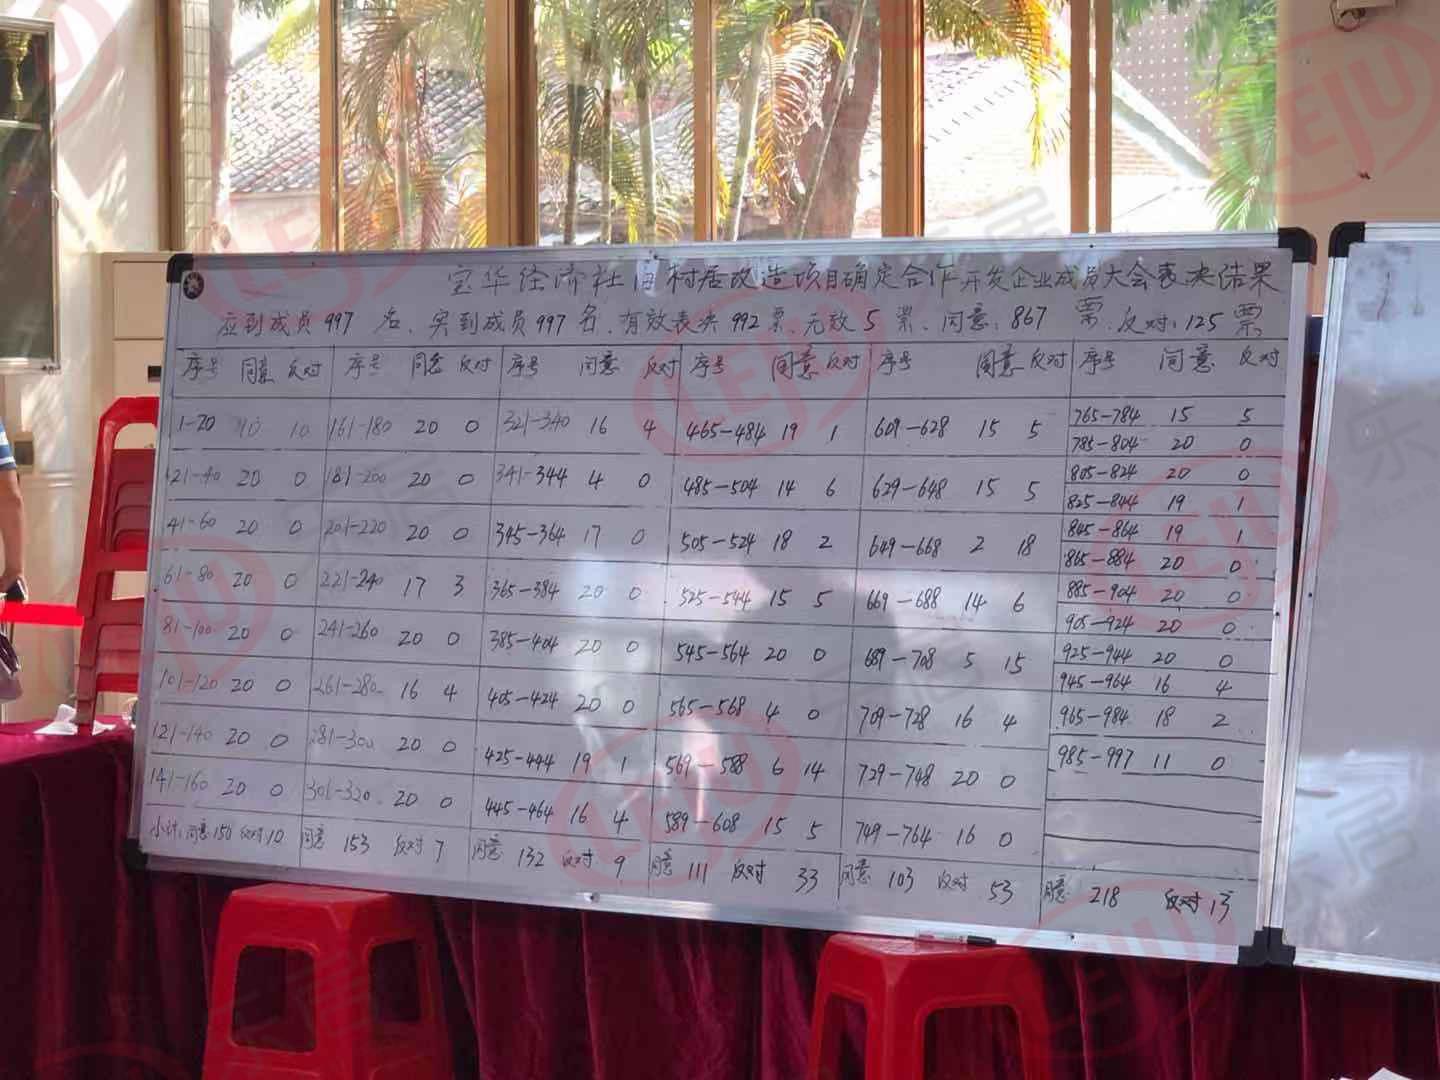 宝华经济社旧村居改造项目确定合作开发企业成员大会表决结果
应到成员997名、实到成员997名、有效表决992票、无效5票、同意:867票、反对:125票
序号 同意 反对 序号 同意 反对 序号 同意 反对 序号 同意 反对 序号 同意 反对 序号 同意 反对
1-20 10 10 161-180 20 0 321-340 16 4 465-484 19 1 609-628 15 5 765-784 15 5
785-804 20 0
21-40 20 0 181-200 20 0 341-344 4 0 485-504 14 6 629-648 15 5 805-824 20 0
825-844 19 1
41-60 20 0 201-220 20 0 345-364 17 0 505-524 18 2 649-668 2 18 845-864 19 1
865-884 20 0
61-80 20 0 221-240 17 3 365-384 20 0 525-544 15 5 669-688 14 6 885-904 20 0
905-924 20 0
81-100 20 0 241-260 20 0 385-404 20 0 545-564 20 0 689-708 5 15 925-944 20 0
945-964 16 4
101-120 20 0 261-280 16 4 405-424 20 0 565-568 4 0 709-728 16 4 965-984 18 2
121-140 20 0 281-300 20 0 425-444 19 1 569-588 6 14 729-748 20 0 985-997 11 0
141-160 20 0 301-320 20 0 445-464 16 4 589-608 15 5 749-764 16 0
小计:同意150 反对10 同意 153 反对 7 同意 132 反对 9 同意 111 反对 33 同意 103 反对 53 同意 218 反对 13
LEJU
乐居